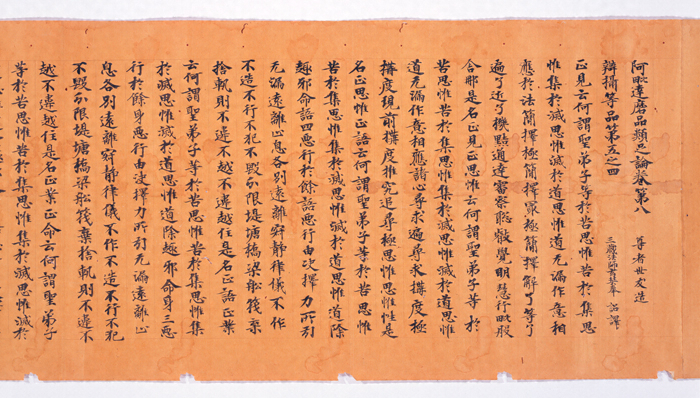 阿毗達磨品類足論卷第八 尊者世友造
辯攝等品第五之四 三藏法師玄奘奉 詔譯
正見云何謂聖弟子等於苦思惟苦於集思
惟集於滅思惟滅於道思惟道无漏作意相
應於法簡擇極簡擇最極簡擇解了等了
遍了近了機黠通達審察聡叡覺明慧行毗般
舍那是名正見正思惟云何謂聖弟子等於
苦思惟苦於集思惟集於滅思惟滅於道思惟
道无漏作意相應諸心尋求遍尋求搆度極
搆度現前搆度推究追尋極思惟思惟性是
名正思惟正語云何謂聖弟子等於苦思惟
苦於集思惟集於滅思惟滅於道思惟道除
趣邪命語四惡行於餘語惡行由決擇力所引
无漏遠離止息各別遠離寂靜律儀不作
不造不行不犯不毀分限堤塘橋梁船筏棄
捨軌則不違不越不違越住是名正語正業
云何謂聖弟子等於苦思惟苦於集思惟集
於滅思惟滅於道思惟道除趣邪命身三惡
行於餘身惡行由決擇力所引无漏遠離止
息各別遠離寂靜律儀不作不造不行不犯
不毀分限堤塘橋梁船筏棄捨軌則不違不
越不違越住是名正業正命云何謂聖弟子
等於苦思惟苦於集思惟集於滅思惟滅於